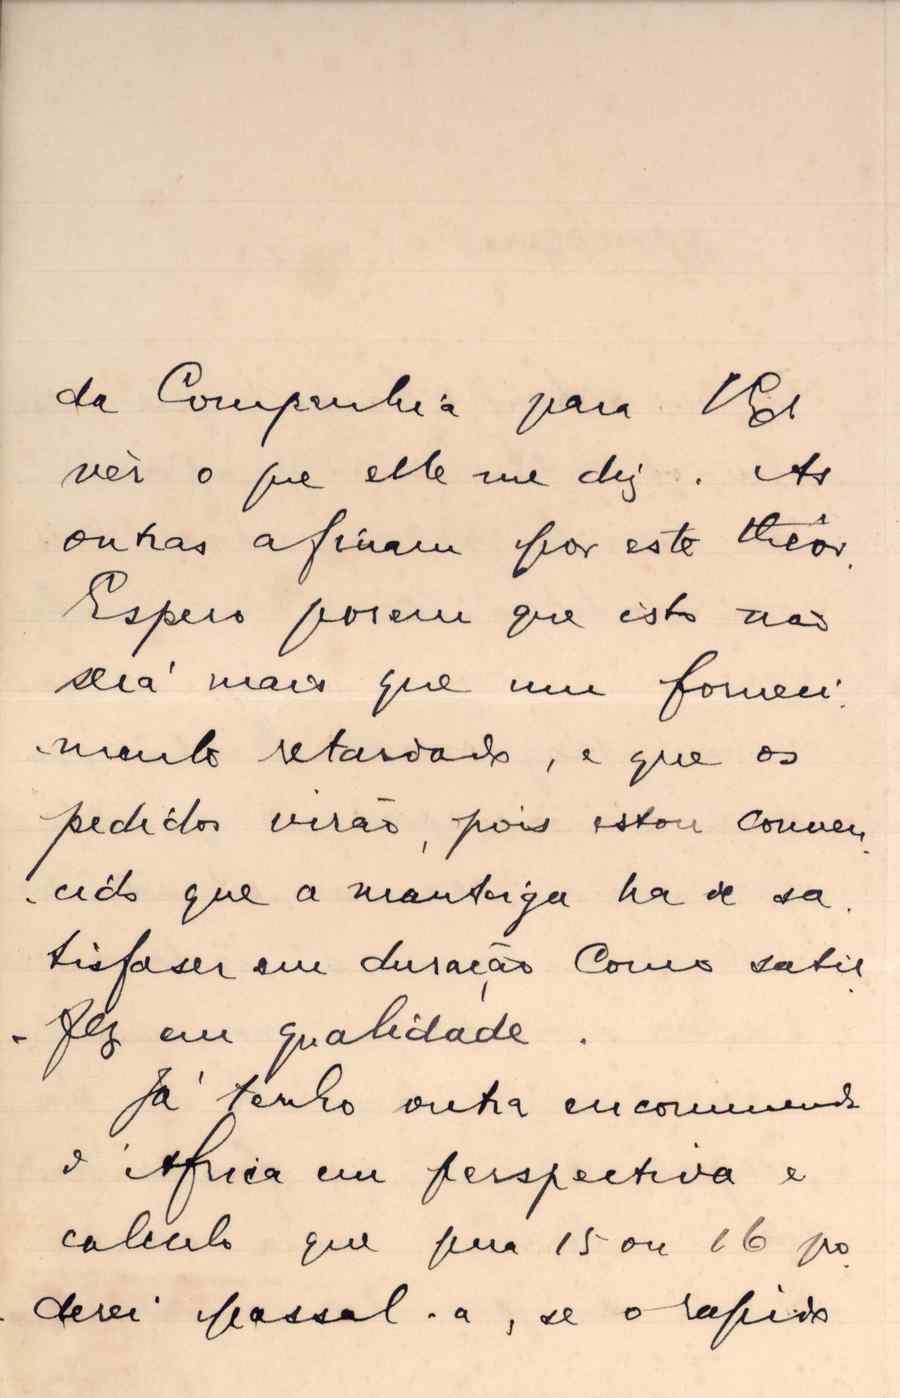 da Companhia para VEx
vêr o que elle me diz. As
outras afinam por este theôr.
Espero porem que isto não
será mais que um forneci-
-mento retardado, e que os
pedidos virão, pois estou conven-
-cido que a manteiga ha de sa-
tisfaser em duração como satis-
-fez em qualidade.
Já tenho outra encommenda
d'Africa em perspectiva e
calculo que para 15 ou 16 po-
-derei passal-a, se o rapido